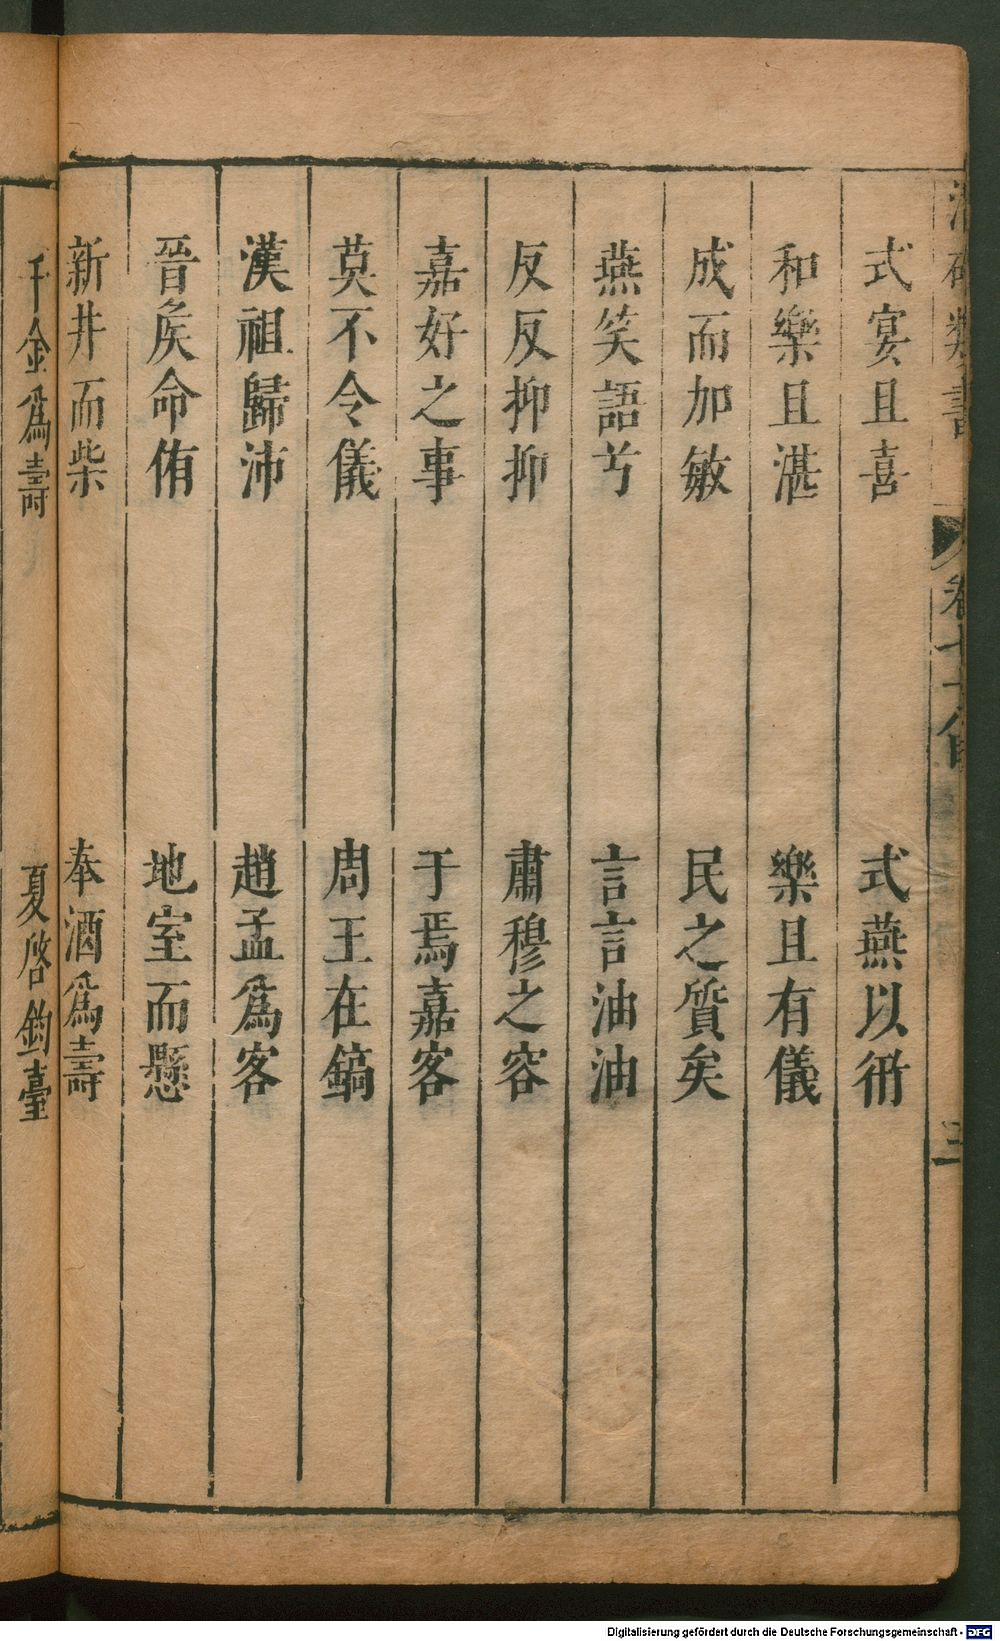 式宴且喜　式燕以衎
和樂且湛　樂且有儀
成而加敏　民之質矣
燕笑語兮　言言油油
反反抑抑　肅穆之容
嘉好之事　于焉嘉客
莫不令儀　周王在鎬
漢祖歸沛　趙孟爲客
晉矦命侑　地室而懸
新井而柴　奉酒爲壽
千金爲壽　夏啓鈞臺
類書
三
Digitalisierung gefördert durch die Deutsche Forschungsgemeinschaft - DFG